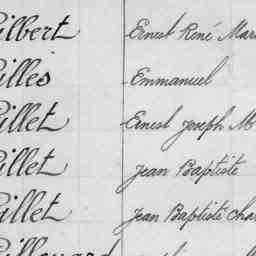 Gilbert Ernest René Mar
Gilles Emmanuel
Gillet Ernest Joseph M
Gillet Jean Baptiste
Gillet Jean Baptiste Cha